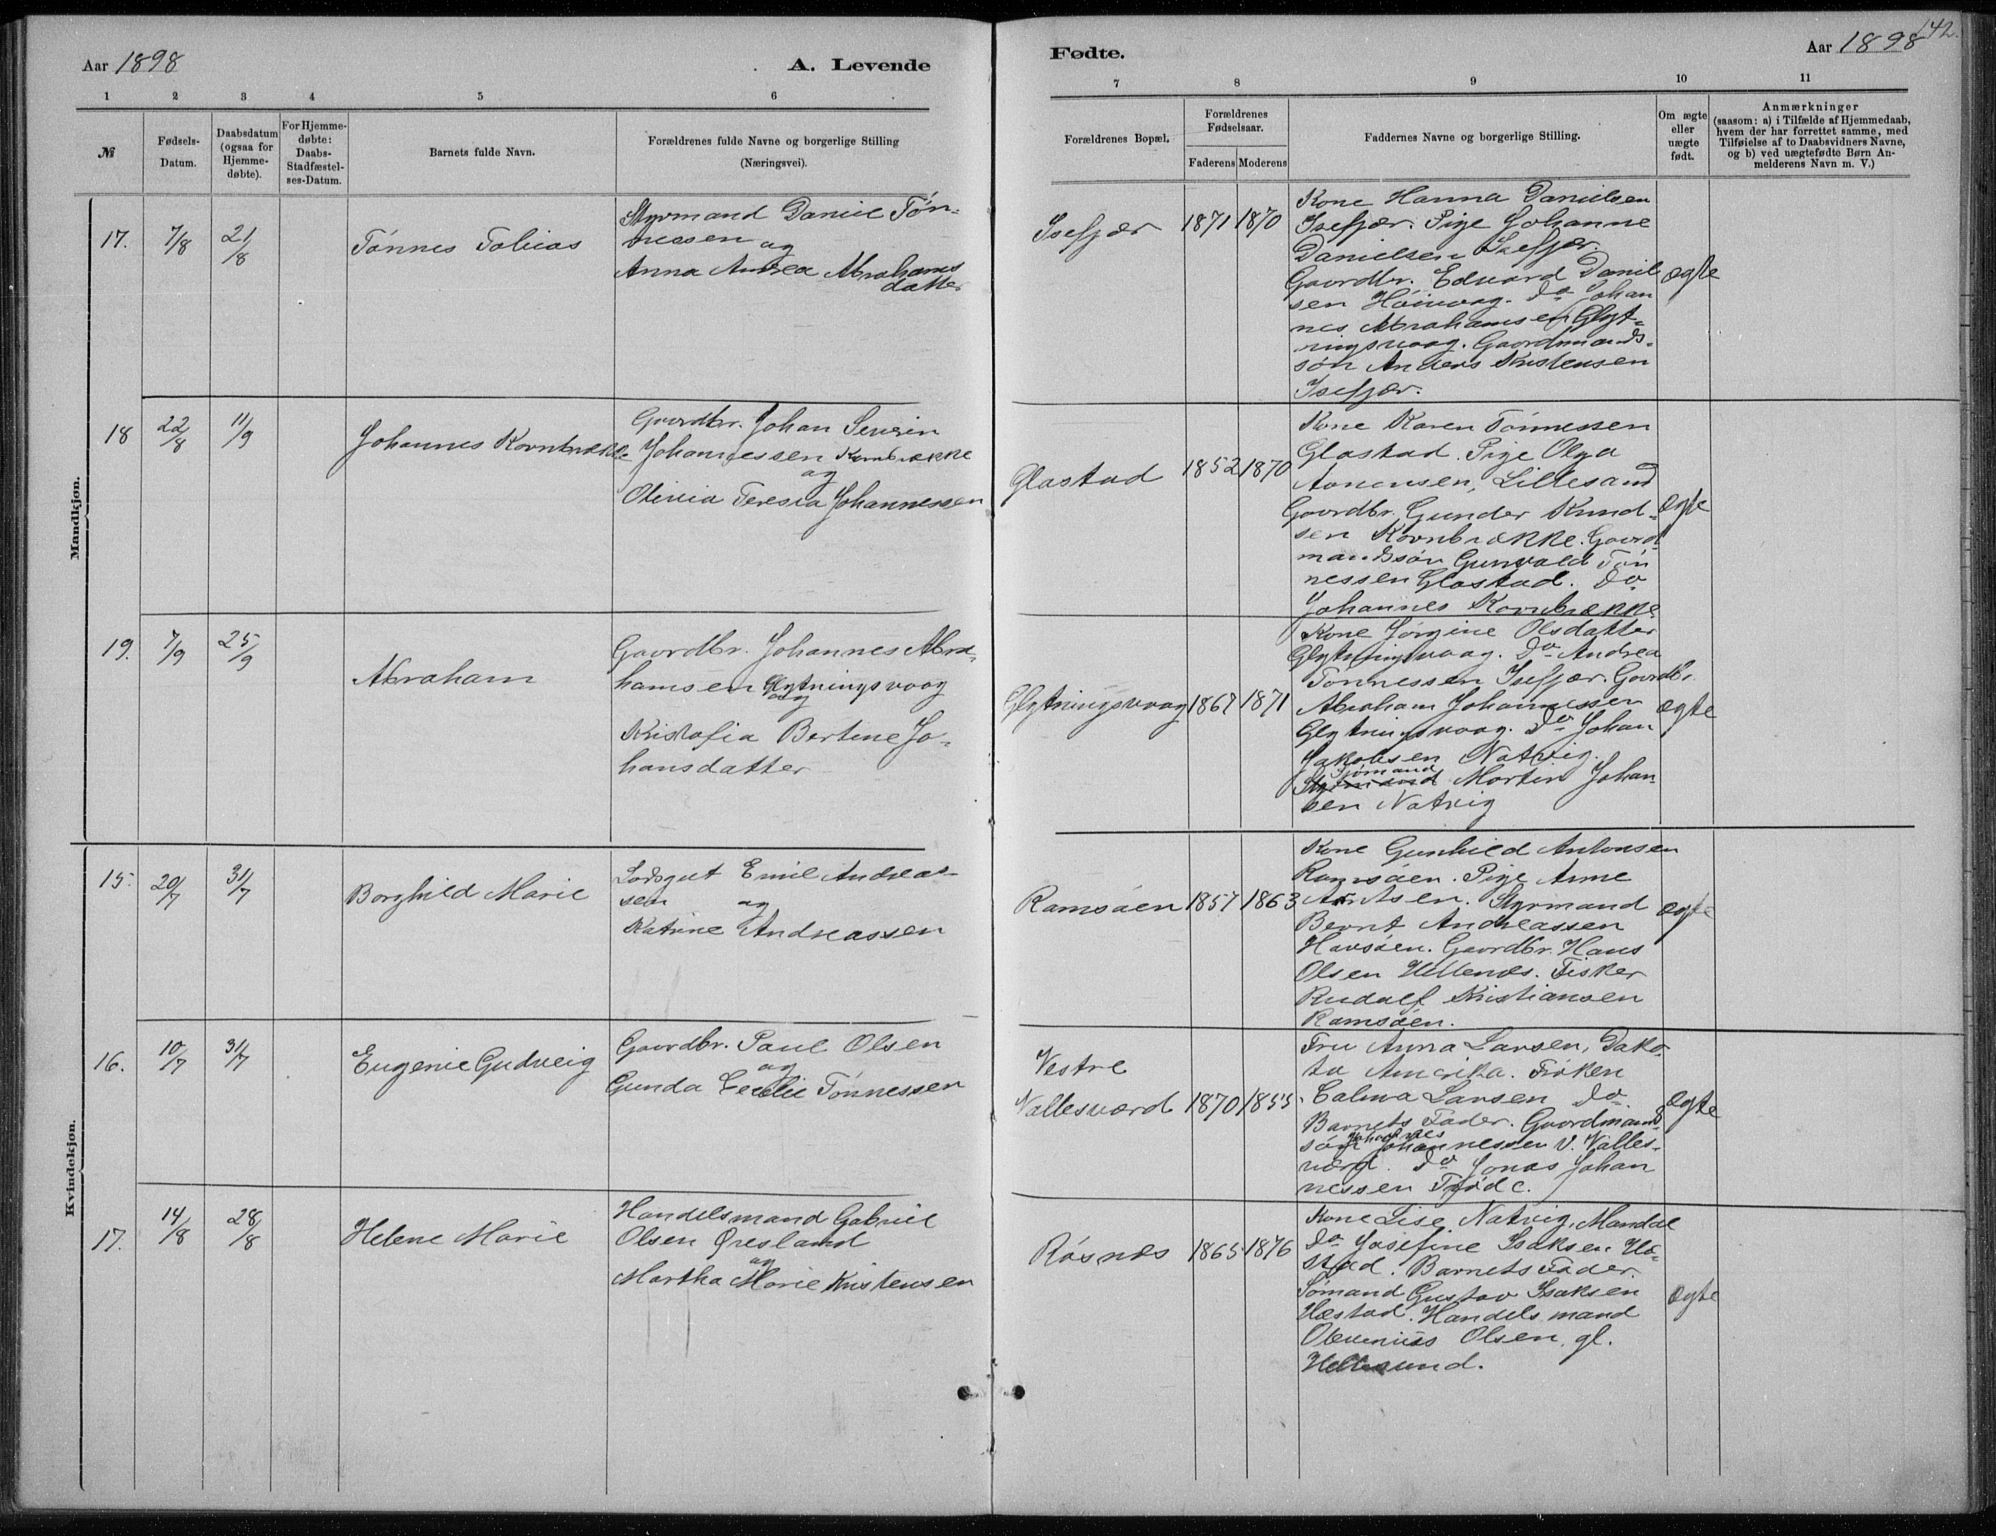 Aar 1898
A. Levende
Fødte.
Aar 1898
142.
1 2 3 4 5 6 7 8 9 10 11
№
Fødsels-
Datum.
Daabsdatum
(ogsaa for
Hjemme-
døbte).
For Hjemme-
døbte:
Daabs-
Stadfæstel-
ses-Datum.
Barnets fulde Navn.
Forældrenes fulde Navne og borgerlige Stilling
(Næringsvei).
Forældrenes Bopæl.
Forældrenes
Fødselsaar.
Faderens Moderens
Faddernes Navne og borgerlige Stilling.
Om ægte
eller
uægte
født.
Anmærkninger
(saasom: a) i Tilfælde af Hjemmedaab,
hvem der har forrettet samme, med
Tilføielse af to Daabsvidners Navne,
og b) ved uægtefødte Børn An-
melderens Navn m. V.)
Mandkjøn.
17. 7/8 21/8
Tönnes Tobias
Styrmand Daniel Tön-
nessen
og
Anna Andrea Abrahams
datter
Isefjær
1871 1870
Kone Hanna Danielsen
Isefjær. Pige Johanne
Danielsen Isefjær.
Gaardbr. Edvard Daniel
sen Höivaag. Do Johan
nes Abrahamsen Glyt-
ningsvaag. Gaardmands-
sön Anders Kristensen
Isefjær.
ægte
18 22/8 11/9
Johannes Kornbrække
Gaardbr. Johan Severin
Johannessen Kornbrække
og
Olivia Teresia Johannessen
Glastad
1852 1870
Kone Karen Tönnessen
Glastad. Pige Olga
Aanonsen, Lillesand
Gaardbr. Gunder Knud-
sen Kornbrække. Gaard
mandssön Gunvald Tön
nessen Glastad. Do
Johannes Kornbrække
ægte
19. 7/9 25/9
Abraham
Gaardbr. Johannes Abra-
hamsen Glytningsvaag
og
Kristofia Bertine Jo-
hansdatter
Glytningsvaag
1867 1871
Kone Jörgine Olsdatter
Glytningsvaag. Do Andrea
Tönnessen Isefjær. Gaardbr.
Abraham Johannessen
Glytningsvaag. Do Johan
Jakobsen Natvig.
Sjömand
Styrmand Morten Johan-
sen Natvig
ægte
Kvindekjøn.
15. 20/7 31/7
Borghild Marie
Lodsgut Emil Andreas-
sen og
Katrine Andreassen
Ramsöen
1857 1863
Kone Gunhild Antonsen
Ramsöen. Pige Anne
Arntsen. Styrmand
Bernt Andreassen
Havsöen. Gaardbr. Hans
Olsen Hellenæs. Fisker
Rudolf Kristiansen
Ramsöen.
ægte
16. 10/7 31/7
Eugenie Gudveig
Gaardbr. Paul Olsen
og
Gunda Cecilie Tönnessen
Vestre
Vallesværd
1870 1855
Fru Anna Larsen, Dako-
ta Amerika. Fröken
Calma Larsen do.
Barnets Fader. Gaardmands
sön Johannes Johannessen V. Valles-
værd. Do Jonas Johan
nessen Tröde.
ægte
17. 14/8 28/8
Helene Marie
Handelsmand Gabriel
Olsen Öresland
og
Martha Marie Kristensen
Rösnæs
1865 1876
Kone Lise Natvig, Mandal
Do Josefine Isaksen Hæ-
stad. Barnets Fader.
Sömand Gustav Isaksen
Hæstad. Handelsmand
Olsen, gl.
Hellesund.
ægte